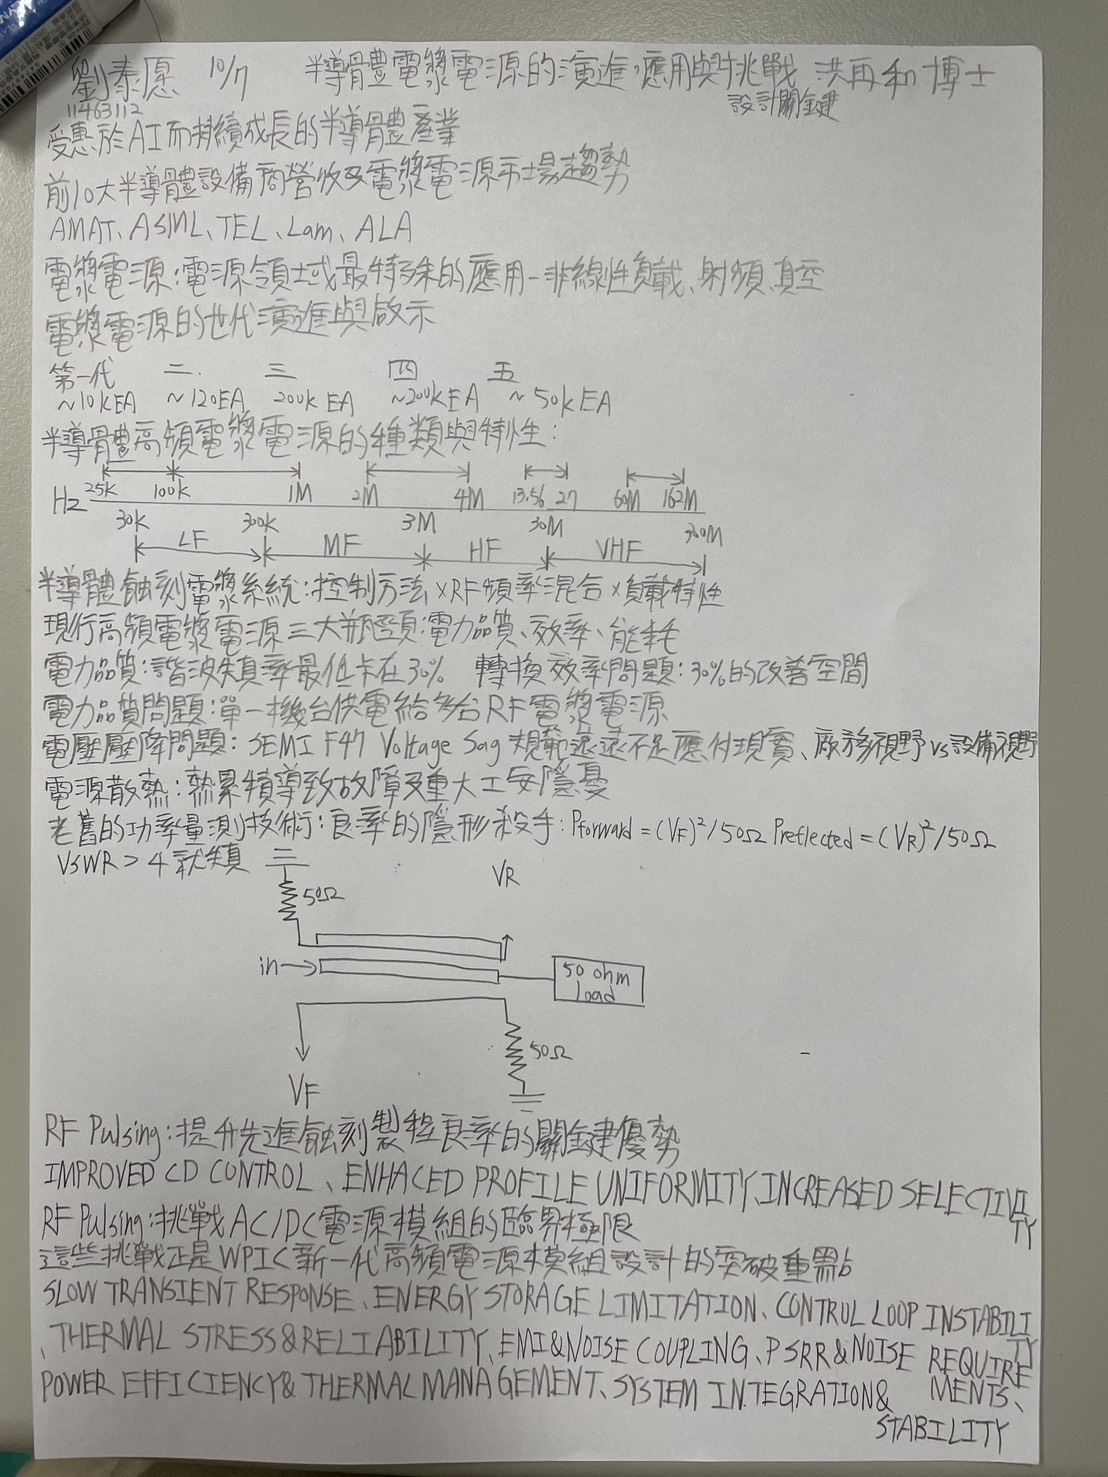 劉泰愿 10/7 半導體電漿電源的演進,應用與挑戰 洪再和博士
11463112 設計關鍵
受惠於AI而持續成長的半導體產業
前10大半導體設備商營收及電漿電源市場趨勢
AMAT、ASML、TEL、Lam、ALA
電漿電源:電源領域最特殊的應用-非線性負載、射頻、真空
電漿電源的世代演進與啟示
第一代 二 三 四 五
~10kEA ~120EA 200kEA ~200kEA ~50kEA
半導體高頻電漿電源的種類與特性:
Hz 25K 100K 1M 2M 4M 13.56 27 60M 162M
30K 300K 3M 30M 300M
LF MF HF VHF
半導體蝕刻電漿系統:控制方法×RF頻率混合×負載特性
現行高頻電漿電源三大瓶頸:電力品質、效率、能耗
電力品質:諧波失真率最低卡在30% 轉換效率問題:30%的改善空間
電力品質問題:單一機台供電給多台RF電漿電源
電壓壓降問題:SEMI F47 Voltage Sag 規範遠遠不足應付現實、廠務視野vs設備視野
電源散熱:熱累積導致故障及重大工安隱憂
老舊的功率量測技術:良率的隱形殺手:Pforward=(VF)²/50Ω Preflected=(VR)²/50Ω
VSWR>4就失真
VR
50Ω
in→
50 ohm
load
50Ω
VF
RF Pulsing:提升先進蝕刻製程良率的關鍵優勢
IMPROVED CD CONTROL、ENHACED PROFILE UNIFORMITY、INCREASED SELECTIVITY
RF Pulsing:挑戰AC/DC電源模組的臨界極限
這些挑戰正是WPIC新一代高頻電源模組設計的突破重點
SLOW TRANSIENT RESPONSE、ENERGY STORAGE LIMITATION、CONTROL LOOP INSTABILITY
、THERMAL STRESS&RELIABILITY、EMI&NOISE COUPLING、PSRR&NOISE REQUIREMENTS、
POWER EFFICIENCY&THERMAL MANAGEMENT、SYSTEM INTEGRATION&
STABILITY